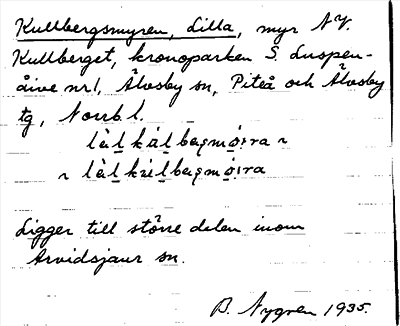 Kullbergsmyren, Lilla, myr NV.
Kullberget, kronoparken S. Luspen-
åive nr 1, Älvsby sn, Piteå och Älvsby
tg, Norrb. l.
Ligger till större delen inom
Arvidsjaur sn.
B. Nygren 1935.